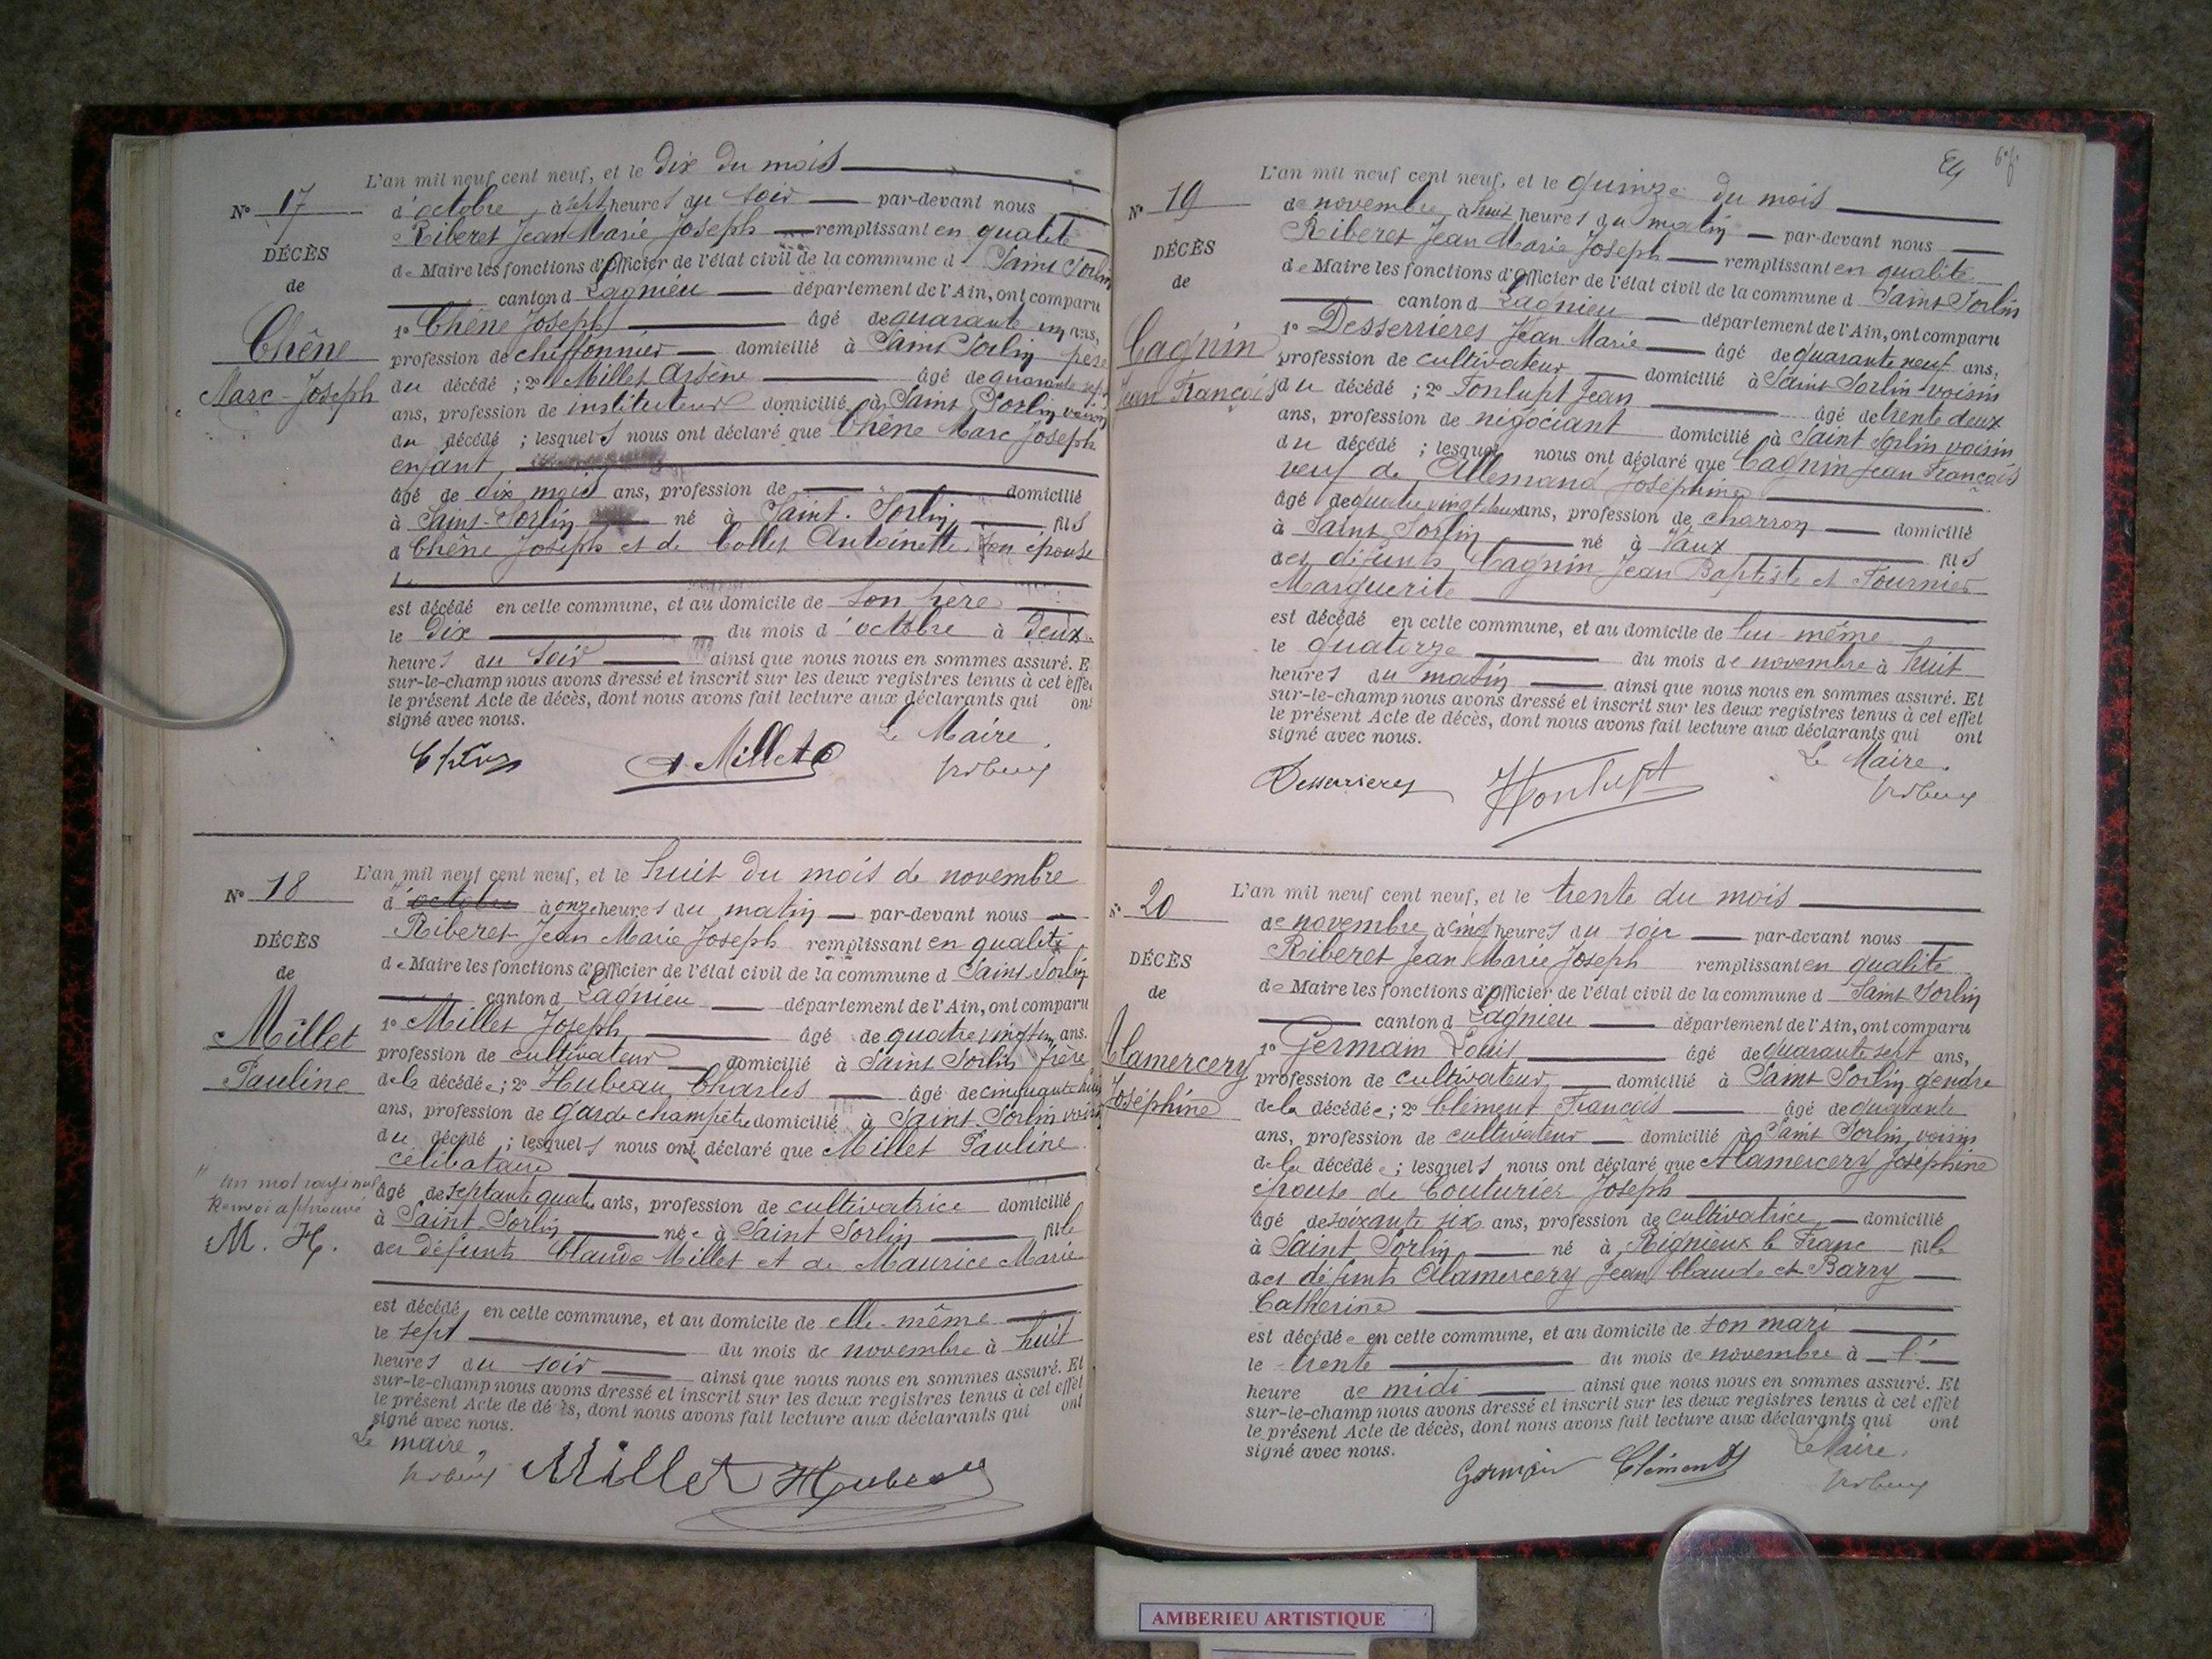 L'an mil neuf cent neuf, et le dix du mois
N° 17
d'octobre, à sept heures du soir par-devant nous
Riberet Jean Marie Joseph remplissant en qualité
DÉCÈS
de Maire les fonctions d'Officier de l'état civil de la commune d Saint Sorlin
de
canton d Lagnieu département de l'Ain, ont comparu
1° Chêne Joseph âgé de quarante un ans,
Chêne
profession de chiffonnier domicilié à Saint Sorlin père
Marc-Joseph
du décédé ; 2° Millet Arsène âgé de quarante sept
ans, profession de instituteur domicilié à Saint Sorlin voisin
du décédé ; lesquels nous ont déclaré que Chêne Marc Joseph
enfant
âgé de dix mois ans, profession de domicilié
à Saint-Sorlin né à Saint-Sorlin fils
d Chêne Joseph et de Collet Antoinette son épouse
est décédé en cette commune, et au domicile de son père
le dix du mois d'octobre à deux
heures du soir ainsi que nous nous en sommes assuré. E
sur-le-champ nous avons dressé et inscrit sur les deux registres tenus à cet effe
le présent Acte de décès, dont nous avons fait lecture aux déclarants qui ont
signé avec nous.
Le Maire.
A. Millet
L'an mil neuf cent neuf, et le huit du mois de novembre
N° 18
d'octobre à onze heures du matin par-devant nous
Riberet Jean Marie Joseph remplissant en qualité
DÉCÈS
de Maire les fonctions d'Officier de l'état civil de la commune d Saint Sorlin
de
canton d Lagnieu département de l'Ain, ont comparu
Millet
1° Millet Joseph âgé de quatre vingt un ans.
profession de cultivateur domicilié à Saint Sorlin frère
Pauline
de la décédée ; 2° Hubeau Charles âgé de cinquante huit
ans, profession de garde champêtre domicilié à Saint Sorlin voisin
du décédé ; lesquels nous ont déclaré que Millet Pauline
célibataire
" un mot rayé nul
âgé de septante quatre ans, profession de cultivatrice domicilié
Renvoi approuvé
à Saint Sorlin née à Saint Sorlin fille
M. H.
des défunts Claude Millet et de Maurice Marie
est décédé en cette commune, et au domicile de elle-même
le sept du mois de novembre à huit
heures du soir ainsi que nous nous en sommes assuré. Et
sur-le-champ nous avons dressé et inscrit sur les deux registres tenus à cet effet
le présent Acte de décès, dont nous avons fait lecture aux déclarants qui ont
signé avec nous.
Le maire,
Millet Hubeau
L'an mil neuf cent neuf, et le quinze du mois
N° 19
de novembre, à huit heures du matin par-devant nous
Riberet Jean Marie Joseph remplissant en qualité
DÉCÈS
de Maire les fonctions d'Officier de l'état civil de la commune d Saint Sorlin
de
canton d Lagnieu département de l'Ain, ont comparu
1° Desserrières Jean Marie âgé de quarante neuf ans,
Cagnin
profession de cultivateur domicilié à Saint Sorlin voisin
Jean François
du décédé ; 2° Tonlupt Jean âgé de trente deux
ans, profession de négociant domicilié à Saint Sorlin voisin
du décédé ; lesquels nous ont déclaré que Cagnin Jean François
veuf de Allemand Joséphine
âgé de quatre vingt deux ans, profession de charron domicilié
à Saint Sorlin né à Vaux fils
des défunts Cagnin Jean Baptiste et Fournier
Marguerite
est décédé en cette commune, et au domicile de lui-même
le quatorze du mois de novembre à huit
heures du matin ainsi que nous nous en sommes assuré. Et
sur-le-champ nous avons dressé et inscrit sur les deux registres tenus à cet effet
le présent Acte de décès, dont nous avons fait lecture aux déclarants qui ont
signé avec nous.
Le Maire.
Desserrieres Tonlupt
L'an mil neuf cent neuf, et le trente du mois
N° 20
de novembre, à cinq heures du soir par-devant nous
Riberet Jean Marie Joseph remplissant en qualité
DÉCÈS
de Maire les fonctions d'Officier de l'état civil de la commune d Saint Sorlin
de
canton d Lagnieu département de l'Ain, ont comparu
Alamercery
1° Germain Louis âgé de quarante sept ans,
profession de cultivateur domicilié à Saint Sorlin gendre
Joséphine
de la décédée ; 2° Clément François âgé de quarante
ans, profession de cultivateur domicilié à Saint Sorlin, voisin
de la décédée ; lesquels nous ont déclaré que Alamercery Joséphine
épouse de Couturier Joseph
âgé de soixante six ans, profession de cultivatrice, domicilié
à Saint Sorlin né à Rignieux le Franc fille
des défunts Alamercery Jean Claude et Barry
Catherine
est décédée en cette commune, et au domicile de son mari
le trente du mois de novembre à l'
heure de midi ainsi que nous nous en sommes assuré. Et
sur-le-champ nous avons dressé et inscrit sur les deux registres tenus à cet effet
le présent Acte de décès, dont nous avons fait lecture aux déclarants qui ont
signé avec nous.
Le Maire.
Germain Clément
AMBERIEU ARTISTIQUE